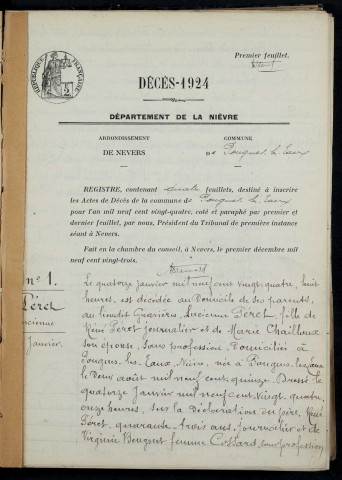 Premier feuillet.
RÉPUBLIQUE FRANÇAISE
DÉCÈS-1924
DÉPARTEMENT DE LA NIÈVRE
ARRONDISSEMENT
DE NEVERS
COMMUNE
DE Pougues les Eaux
REGISTRE, contenant feuillets, destiné à inscrire
les Actes de Décès de la commune de Pougues les Eaux
pour l'an mil neuf cent vingt-quatre, coté et paraphé par premier et
dernier feuillet, par nous, Président du Tribunal de première instance
séant à Nevers.
Fait en la chambre du conseil, à Nevers, le premier décembre mil
neuf cent vingt-trois.
N° 1.
Péret
Lucienne
Janvier.
Le quatorze janvier mil neuf cent vingt quatre, huit
heures, est décédée au domicile de ses parents,
au lieudit Lucienne Péret, fille de
René Péret journalier et de Marie Chailloux
son épouse, sans profession, domiciliés à
Pougues les Eaux, Nièvre, née à Pougues les Eaux
le deux août mil neuf cent quinze. Dressé le
quatorze Janvier mil neuf cent vingt quatre,
onze heures, sur la déclaration du père, René
Péret, quarante trois ans, journalier et de
Virginie femme Cossard, sans profession